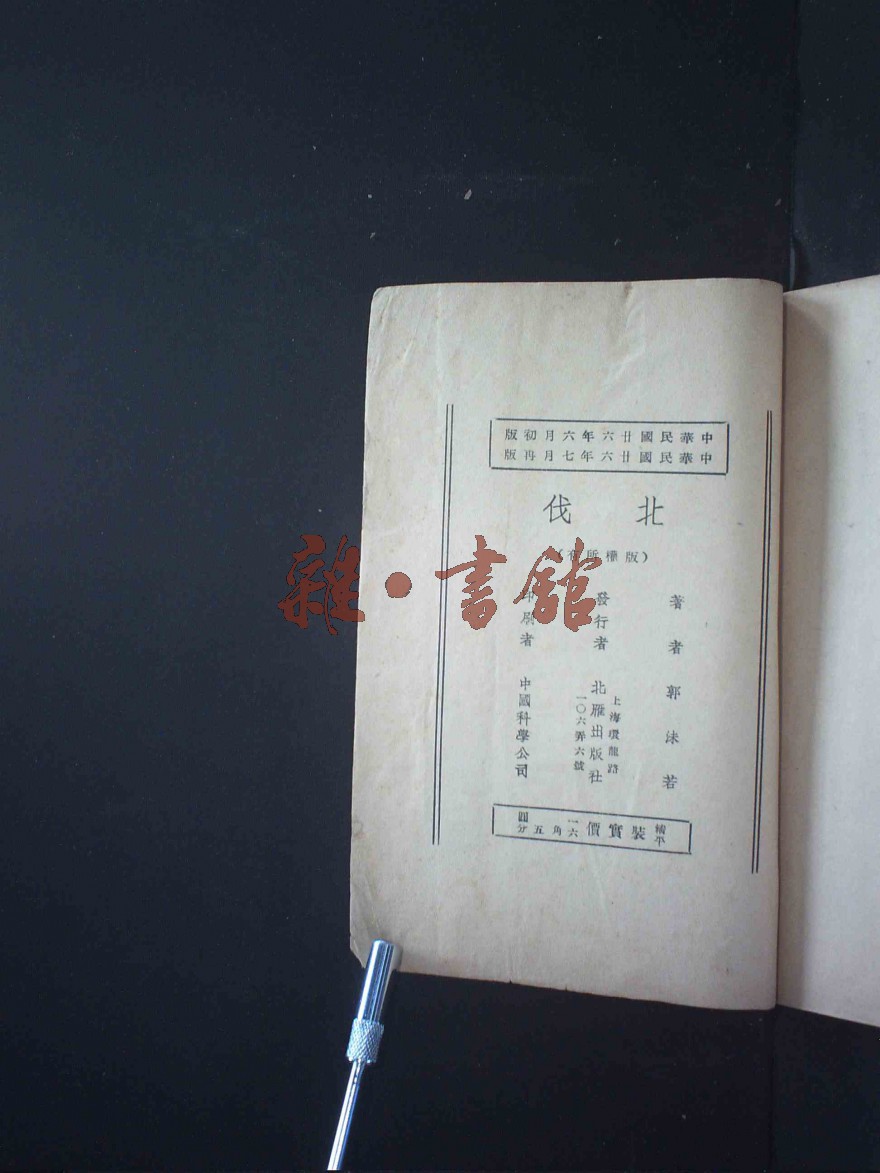 中華民國廿六年六月初版
中華民國廿六年七月再版
北伐
（版權所有）
著者 郭沫若
發行者 北雁出版社
上海環龍路
一〇六弄六號
印刷者 中國科學公司
精平裝實價一六角五圓分
雜·書館